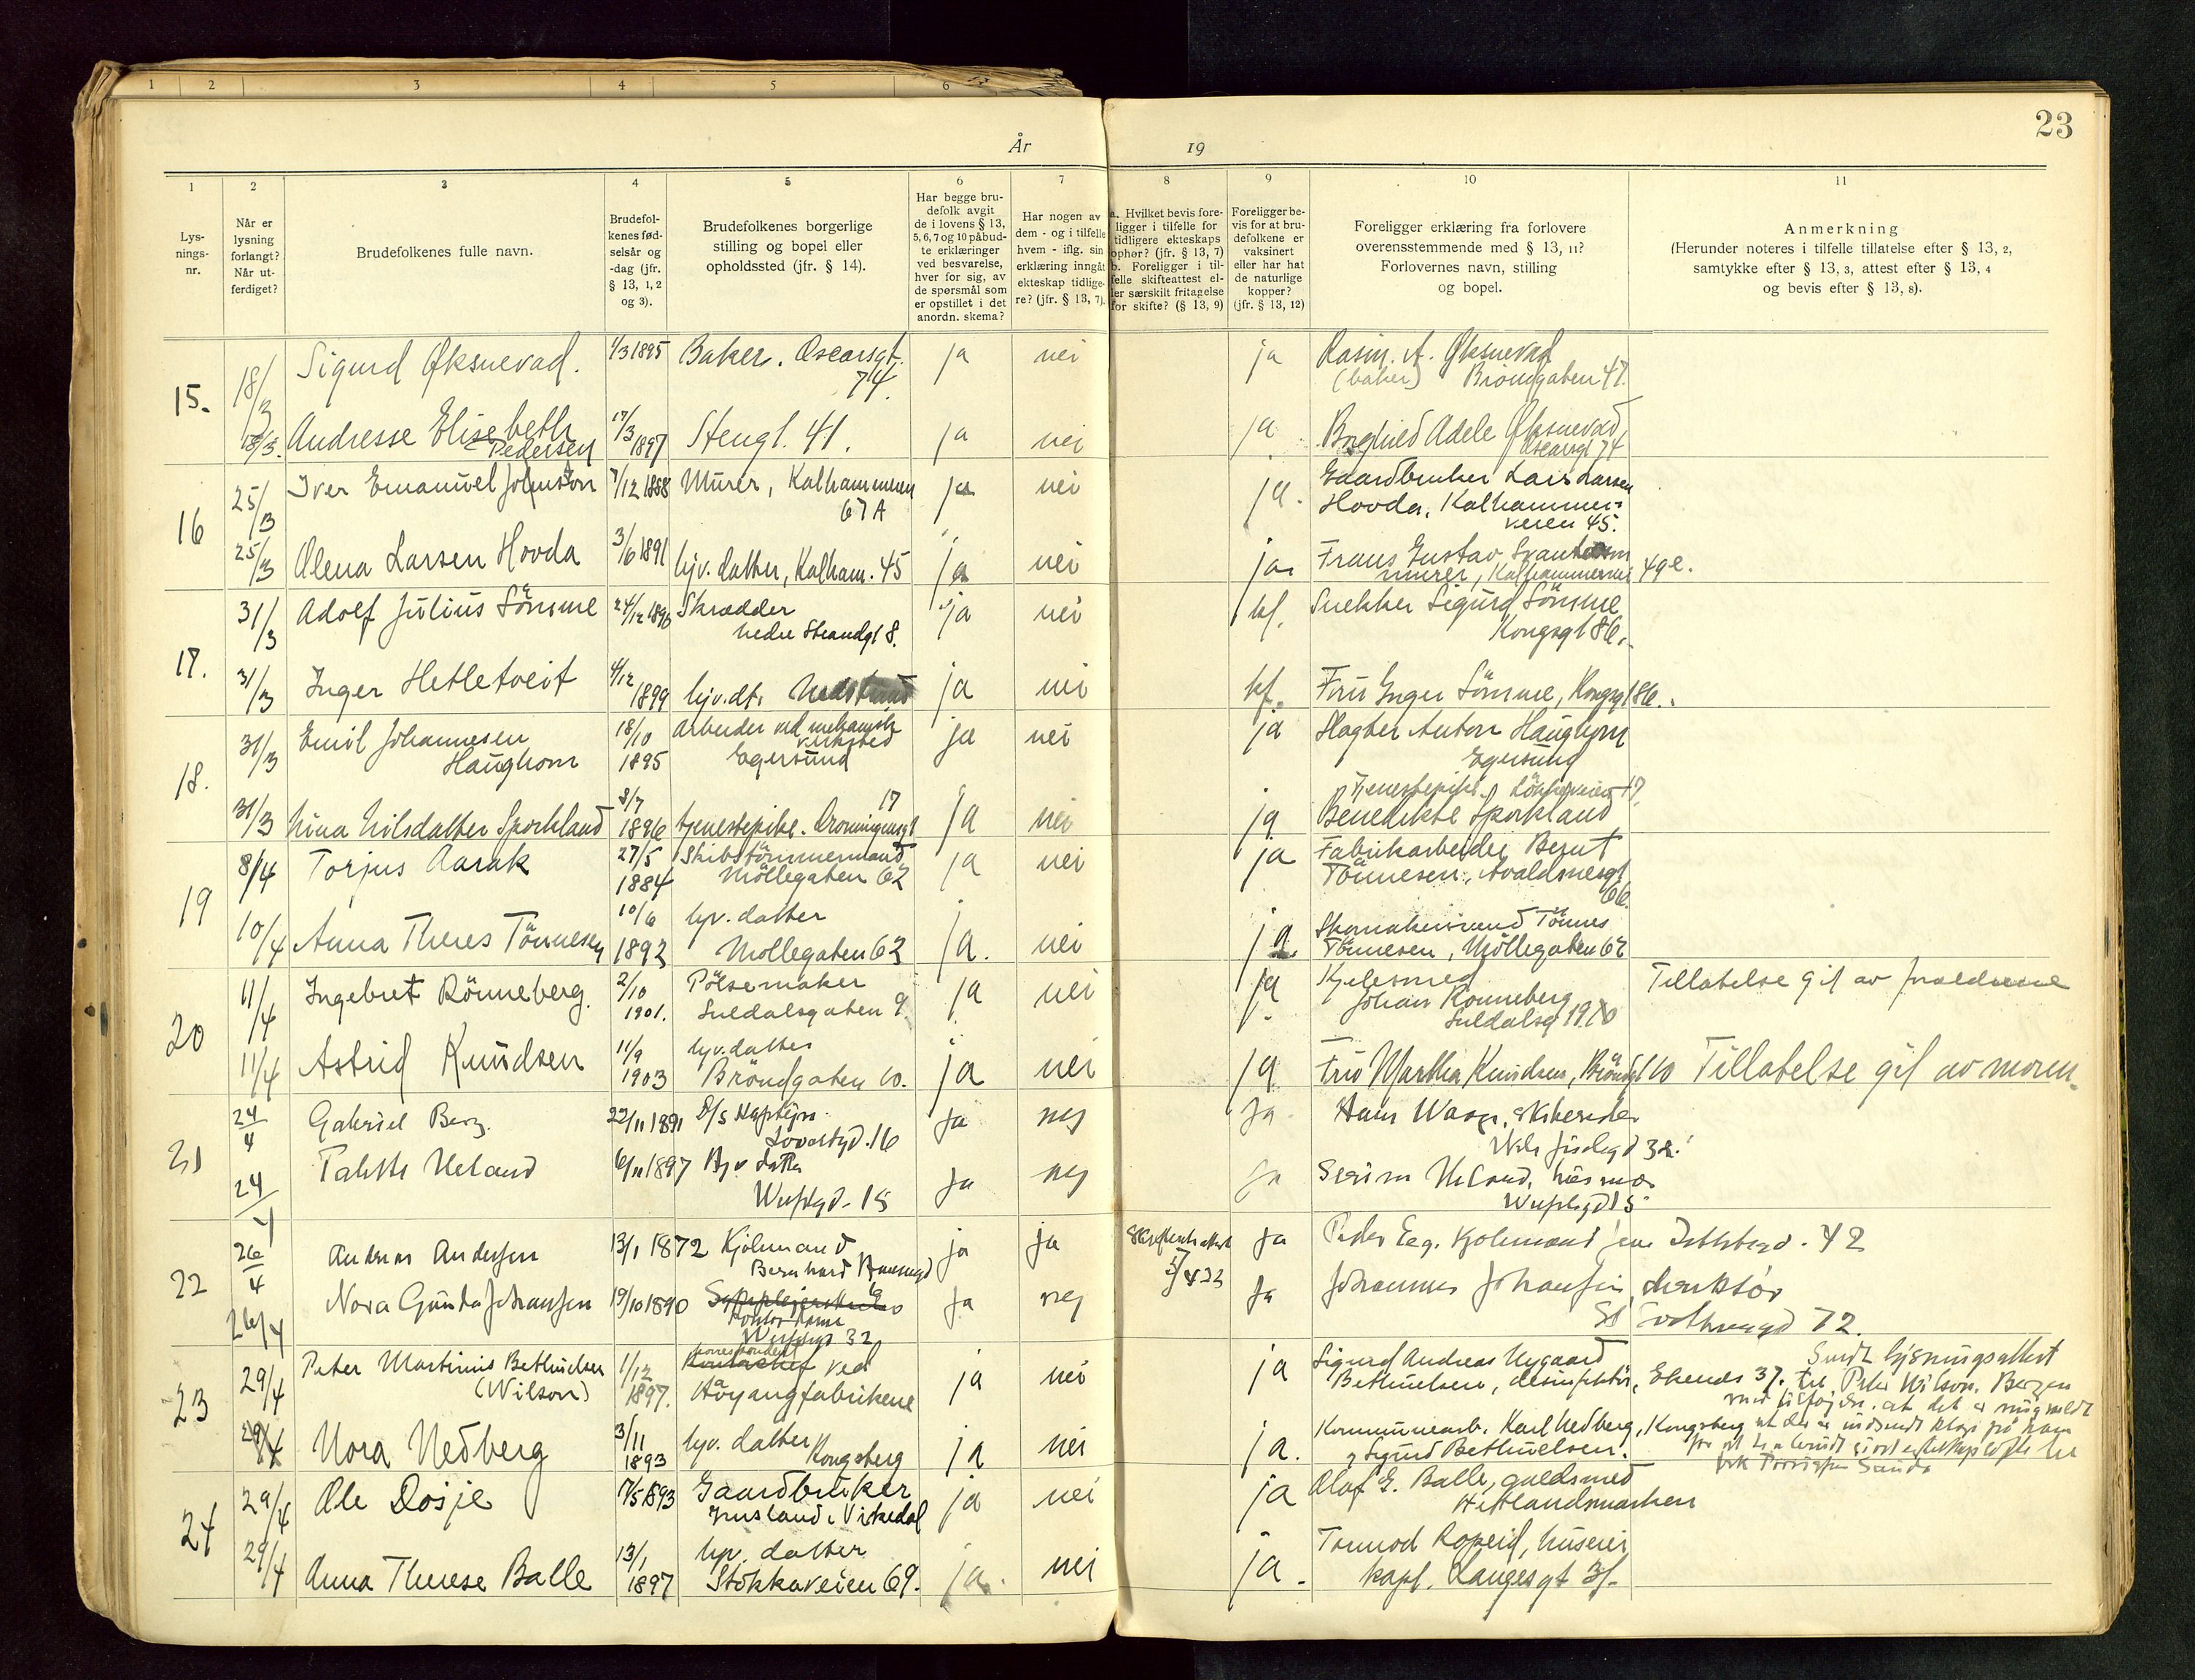 1 2 3 4 5 6
23
År 19
1 2 3 4 5 6 7 8 9 10 11
Lys-
nings-
nr.
Når er
lysning
forlangt?
Når ut-
ferdiget?
Brudefolkenes fulle navn.
Brudefol-
kenes fød-
selsår og
-dag (jfr.
§ 13, 1, 2
og 3).
Brudefolkenes borgerlige
stilling og bopel eller
opholdssted (jfr. § 14).
Har begge bru-
defolk avgit
de i lovens § 13,
5, 6, 7 og 10 påbud-
te erklæringer
ved besvarelse,
hver for sig, av
de spørsmål som
er opstillet i det
anordn. skema?
Har nogen av
dem - og i tilfelle
hvem - iflg. sin
erklæring inngåt
ekteskap tidlige-
re? (jfr. § 13, 7).
a. Hvilket bevis fore-
ligger i tilfelle for
tidligere ekteskaps
ophør? (jfr. § 13, 7)
b. Foreligger i til-
felle skifteattest el-
ler særskilt fritagelse
for skifte? (§ 13, 9)
Foreligger be-
vis for at bru-
defolkene er
vaksinert
eller har hat
de naturlige
kopper?
(jfr. § 13, 12)
Foreligger erklæring fra forlovere
overensstemmende med § 13, 11?
Forlovernes navn, stilling
og bopel.
Anmerkning
(Herunder noteres i tilfelle tillatelse efter § 13, 2,
samtykke efter § 13, 3, attest efter § 13, 4
og bevis efter § 13, 8).
15. 18/3 Sigurd Øksnevad. 4/3 1895 Baker. Oscarsgt. ja nei ja Rasm. A. Øksnevad
74. (baker) Bröndgaten 47.
18/3. Andresse Elisebeth 17/3 1897 Stengt. 41. ja nei ja Borghild Adele Øksnevad,
Pedersen Oscarsgt 74
16 25/3 Iver Emanuel Johnston 7/12 1888 Murer, Kalhammeren ja nei ja. Gaardbruker Lars Larsen
67 A Hovda, Kalhammer-
veien 45.
25/3 Olena Larsen Hovda 3/6 1891 hjv. datter, Kalham. 45 ja nei ja Frans Gustav
murer, 49 e.
17. 31/3 Adolf Julius Sömme 24/12 1896 Skrædder ja nei kf. Snekker Sigurd Sömme
nedre Strandgt 8. Kongsgt 86.
31/3 Inger Hetletveit 4/12 1899 hjv. dt. Nedstrand ja nei kf. Fru Inger Sömme, Kongsgt 86.
18. 31/3 Emil Johannesen 18/10 1895 Arbeider ved mekanisk ja nei ja Slagter Anton Haughom
Haughom verksted Egersund
Egersund
Tjenestepike. 17
31/3 Nina Nilsdatter Sporkland 8/7 1896 tjenestepike. Dronningensgt 17 ja nei ja Benedikte Sporkland
19 8/4 Torjus Aarak 27/5 1884 Skibstömmermand ja nei ja Fabrikarbeider Berut
Möllegaten 62 Tönnesen, Avaldsnesgt
66.
10/4 Anna Theres Tönnesen 10/6 1892 hjv. datter ja. nei ja. Skomakersvend Tönnes
Möllegaten 63 Tönnesen, Möllegaten 62
20 11/4 Ingebret Rönneberg. 2/10 1901. Pölsemaker ja nei ja. Kjelesmed Tillatelse git av forældrene
Suldalsgaten 9 Johan Ronneberg
Suldalsg
11/4 Astrid Knudsen 11/9 1903 hjv. datter ja nei ja Fru Martha Knudsen, Bröndgt 10 Tillatelse git av moren
Bröndgaten 10.
21 24/4 Gabriel Berg. 22/11 1891 D/S Kaptejn ja nej ja Hans
16 32.
24/4 Heland 6/11 1897 Hjv datter ja nej ja Heland,
15
22 26/4 Andreas Andersen 13/1 1872 Kjölmand ja ja Skifteattest ja Peder Eeg. 42
Bernhard
26/4 Nora Gunda Johansen 19/10 1890 ja nej ja Johannes Johansen,
Kontordame 72.
32
23 29/4 Peter Martinius Bethuelsen 1/12 1897. korrespondent ved ja nei ja Sigurd Andreas Nygaard Sendt lysningsattest
(Wilson) Höyangfabrikene Bethuelsen, desinfektör, 37. til Peter Wilson, Bergen
29/4 Nora Nedberg 3/11 1893 hjv. datter Kongsberg ja nei ja. Kommunearb. Karl Nedberg, Kongsberg
Sigurd Bethuelsen.
24 29/4 Ole Dosje 7/5 1893 Gaardbruker ja nei ja Olaf G. Balle, guldsmed
Vikedal Hetlandsmarken
29/4 Anna Therese Balle 13/1 1897 hjv. datter ja. nei ja. Tormod Ropeid,
Stokkaveien 69. kapt. Langesgt